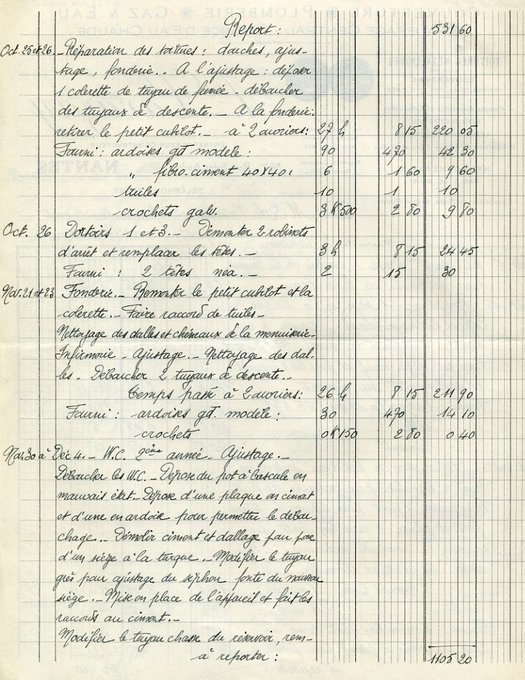 Report : 531 60
Oct. 25 et 26 _ Réparation des toitures : douches, ajus-
tage, fonderie.. A l'ajustage : déposer
1 colerette de tuyau de fumée. débaucher
des tuyaux de descente._ A la fonderie:
retirer le petit cubilot. _ à 2 ouvriers: 27 h 8 15 220 05
Fourni : ardoises gd modèle : 90 470 42 30
" fibro. ciment 40x40: 6 1 60 9 60
tuiles 10 1 10
crochets galv. 3 K 500 2 80 9 80
Oct. 26 Dortoirs 1 et 3._ Démonter 2 robinets
d'arrêt et remplacer les têtes._ 3 h 8 15 24 45
Fourni : 2 têtes 2 15 30
Nov. 21 et 23 Fonderie._ Remonter le petit cubilot et la
colerette._ Faire raccord de tuiles_
Nettoyage des dalles et chéneaux à la menuiserie_
Infirmerie _ Ajustage._ Nettoyage des dal-
les_ Débaucher 2 tuyaux de descente._
Temps passé à 2 ouvriers: 26 h 8 15 211 90
Fourni : ardoises gd. modèle : 30 470 14 10
crochets 0 K 150 2 80 0 40
Nov. 30 à Déc 4._ W.C. 2ème année Ajustage._
Débaucher les W.C._ Dépose du pot à bascule en
mauvais état_ Dépose d'une plaque en ciment
et d'une en ardoise pour permettre le débau-
chage._ Démolir ciment et dallage pour pose
d'un siège à la turque._ Modifier le tuyau
grès pour ajustage du siphon fonte du nouveau
siège._ Mise en place de l'appareil et fait les
raccords au ciment._
Modifier le tuyau chasse du réservoir, rem-
à reporter : 1105 20